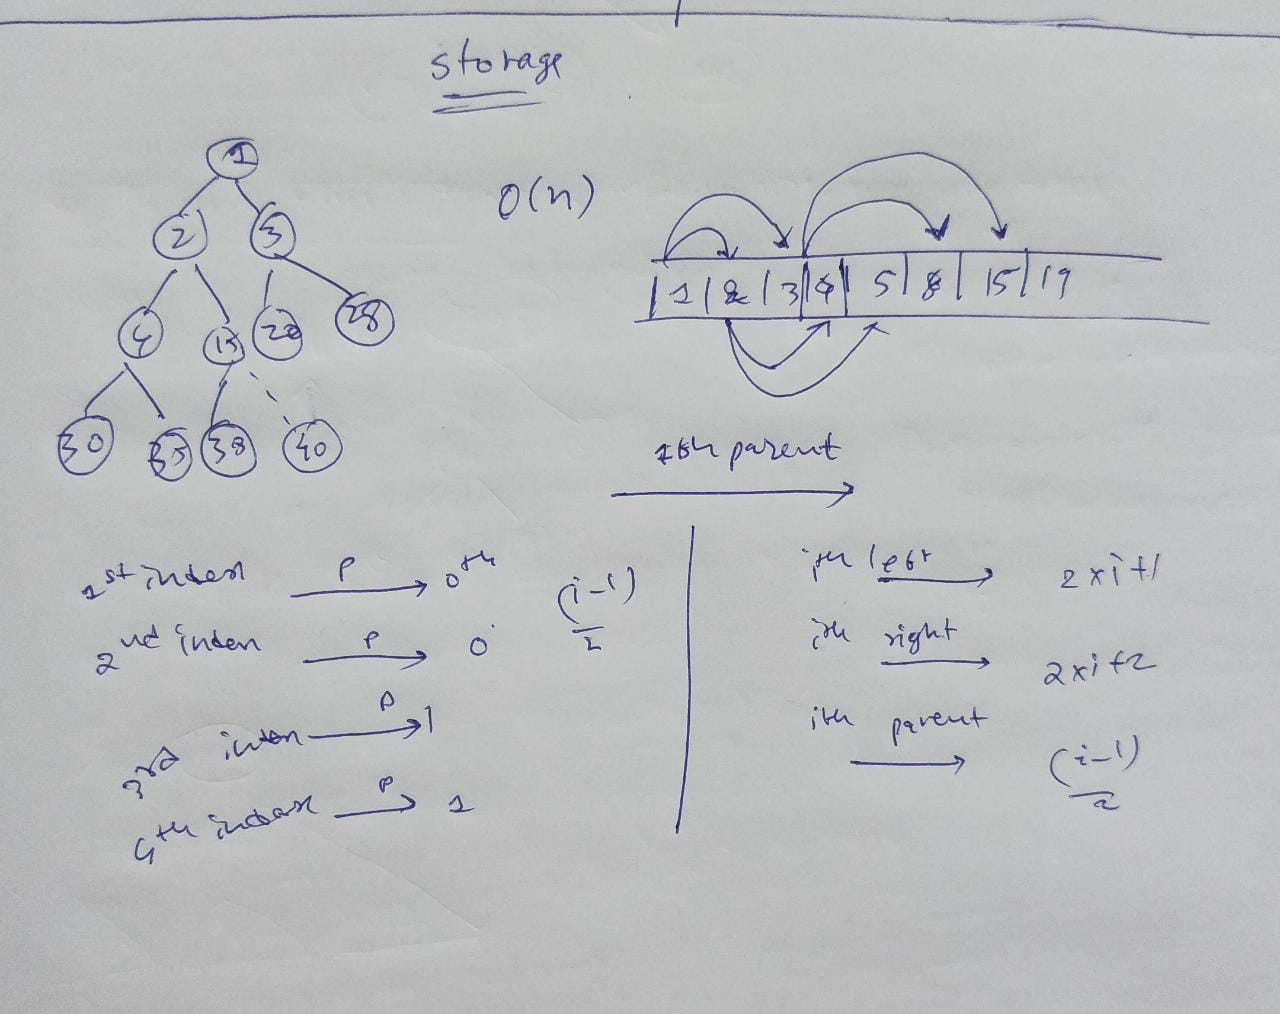 storage
1
2 3
4 15 20 28
30 35 38 40
O(n)
1 2 3 4 5 8 15 19
ith parent
1st index P 0th
(i-1)
2
2nd index P 0
3rd index P 1
4th index P 1
ith left 2xi+1
ith right 2xi+2
ith parent (i-1)
2